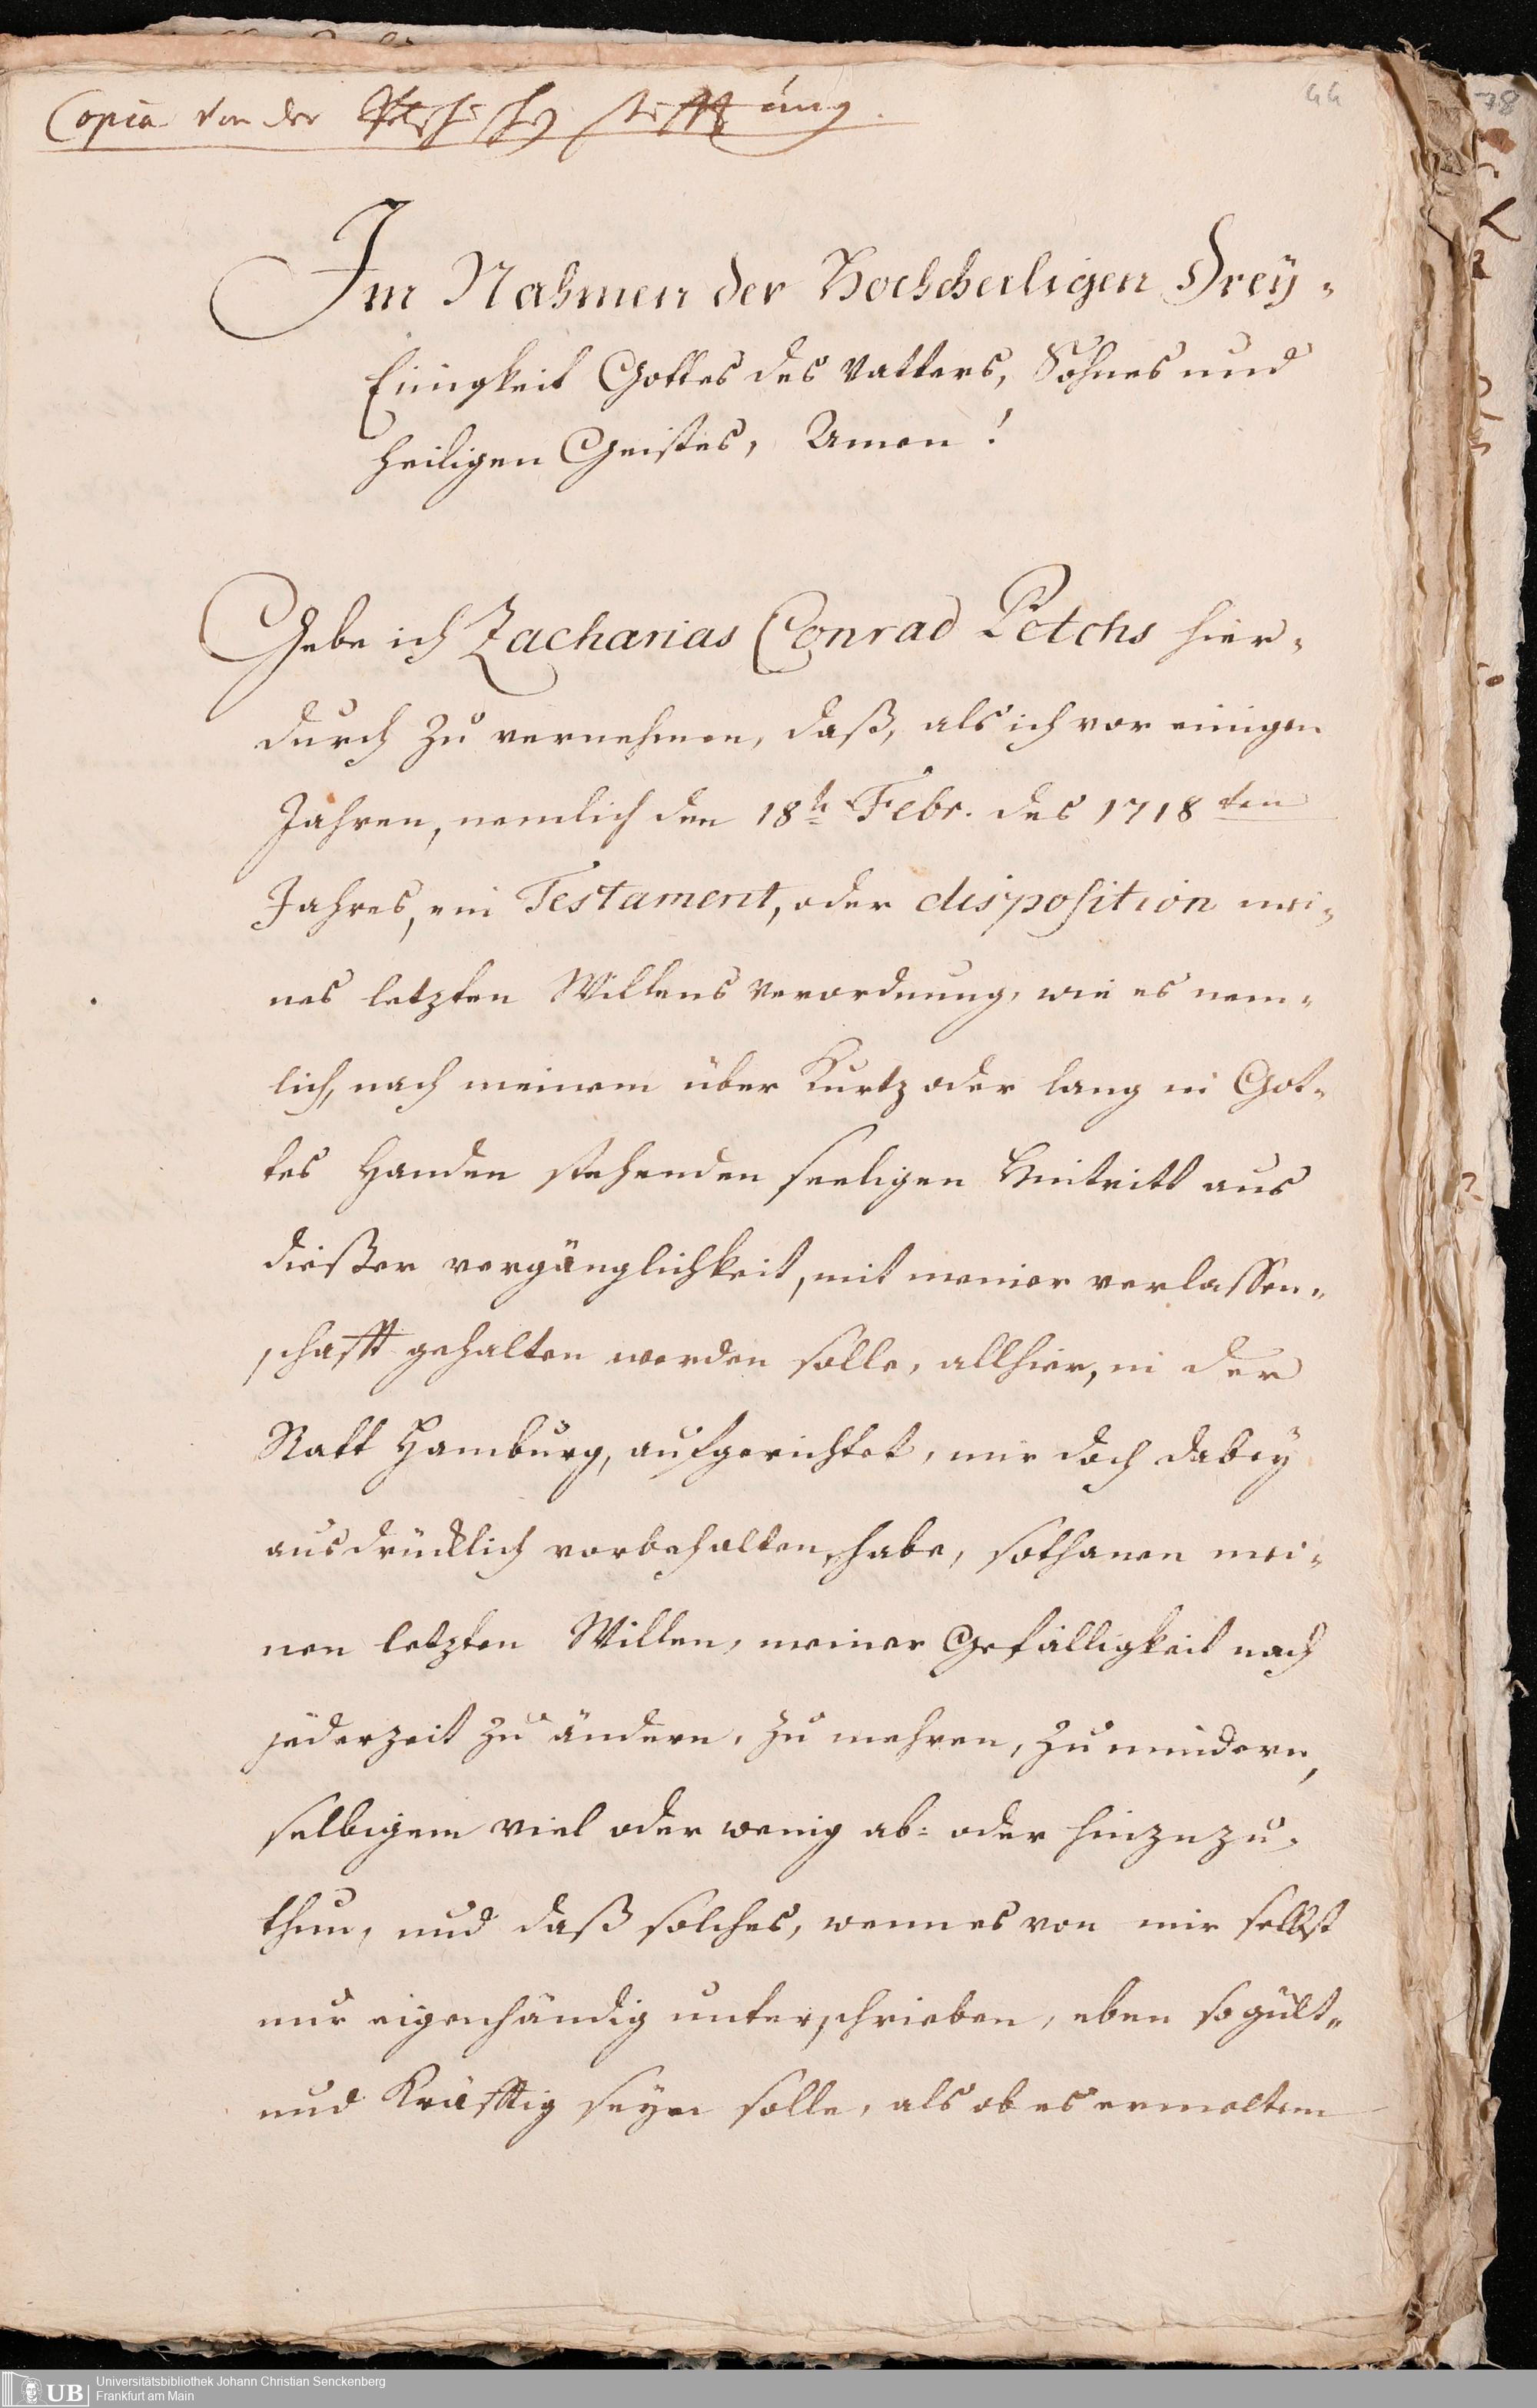 Copia von der Petschischen stifftung.
44
78
Im Nahmen der Hochheiligen Drey-
Einigkeit Gottes des Vatters, Sohnes und
heiligen Geistes, Amen!
Gebe ich Zacharias Conrad Petchs hier-
durch zu vernehmen, daß, als ich vor einigen
Jahren, nemlich den 18t. Febr. des 1718ten
Jahres, ein Testament, oder disposition mei-
nes letzten Willens Verordnung, wie es nem-
lich, nach meinem über Kurtz oder lang in Got-
tes Handen stehenden seeligen Hintritt aus
dießer vergänglichkeit, mit meiner verlassen-
schafft gehalten werden solle, allhier, in der
Statt Hamburg, aufgerichtet, mir doch dabey
ausdrücklich vorbehalten habe, sothanen mei-
nen letzten Willen, meiner Gefälligkeit nach
jederzeit zu ändern, zu mehren, zu mindern,
selbigem viel oder wenig ab- oder hinzuzu-
thun, und daß solches, wenn es von mir selbst
nur eigenhändig unterschrieben, eben so gült-
und Kräfftig seyn solle, als ob es ermeltem
UB
Universitätsbibliothek Johann Christian Senckenberg
Frankfurt am Main